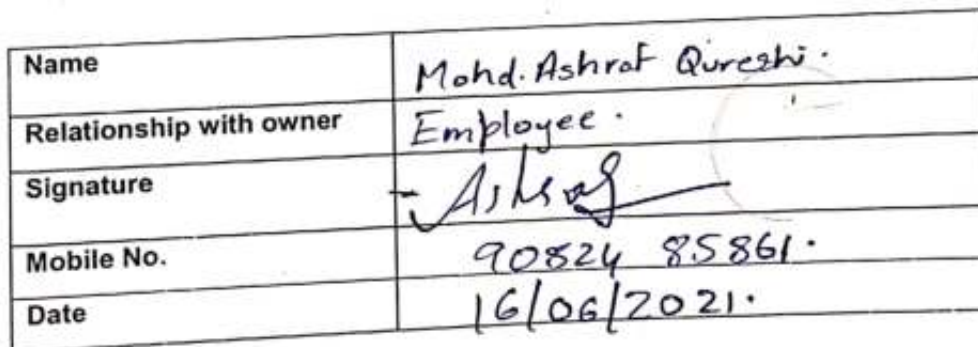 Name Mohd. Ashraf Qureshi.
Relationship with owner Employee.
Signature Ashraf
Mobile No. 90824 85861.
Date 16/06/2021.